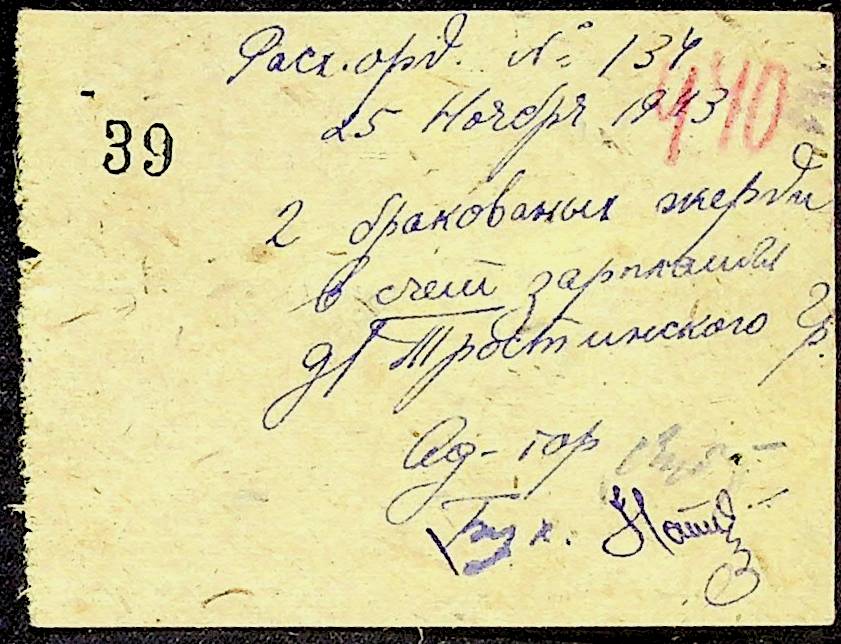 Расх. орд. № 134
25 Ноября 1943
440
39
2 бракованых жерди
в счет зарплаты
дГ Тростинского Гр.
Ад-тор
Бух.